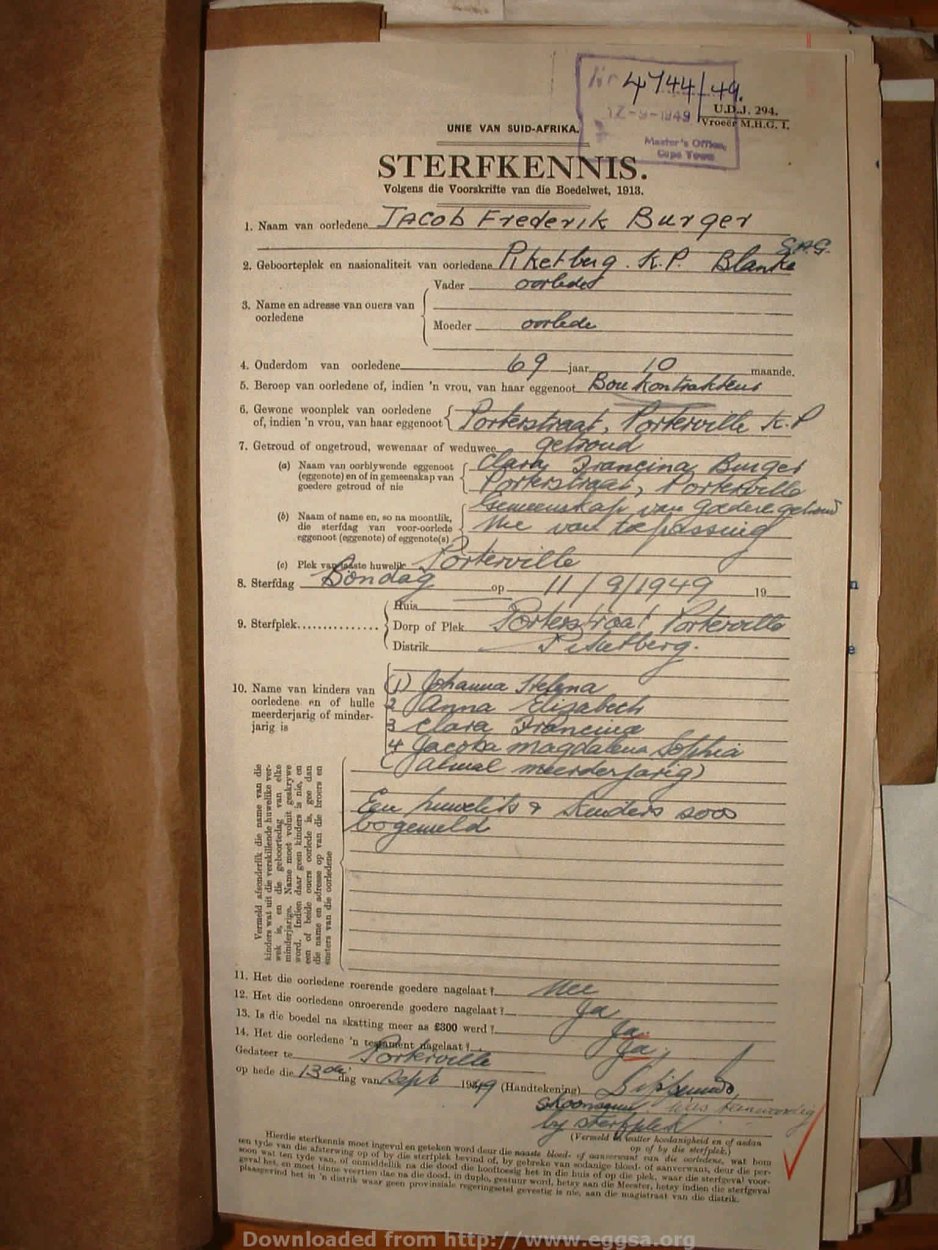 Nr 4744/49.
12-9-1949
U.D.J. 294.
Vroeër M.H.G. 1.
Master's Office,
Cape Town
UNIE VAN SUID-AFRIKA.
STERFKENNIS.
Volgens die Voorskrifte van die Boedelwet, 1913.
1. Naam van oorledene Jacob Frederik Burger
2. Geboorteplek en nasionaliteit van oorledene Piketberg. K.P. Blanke S.A.G.
3. Name en adresse van ouers van oorledene
Vader oorlede
Moeder oorlede
4. Ouderdom van oorledene 69 jaar 10 maande.
5. Beroep van oorledene of, indien 'n vrou, van haar eggenoot Bou Kontrakteur
6. Gewone woonplek van oorledene
of, indien 'n vrou, van haar eggenoot Porterstraat, Porterville K.P
7. Getroud of ongetroud, wewenaar of weduwee getroud
(a) Naam van oorblywende eggenoot
(eggenote) en of in gemeenskap van
goedere getroud of nie
Clara Francina Burger
Porterstraat, Porterville
Gemeenskap van goedere getroud
(b) Naam of name en, so na moontlik,
die sterfdag van voor-oorlede
eggenoot (eggenote) of eggenote(s)
Nie van toepassing
(c) Plek van laaste huwelik Porterville
8. Sterfdag Sondag op 11/9/1949 19
9. Sterfplek
Huis
Dorp of Plek Porterstraat Porterville
Distrik Piketberg.
10. Name van kinders van
oorledene en of hulle
meerderjarig of minder-
jarig is
(1) Johanna Helena
2 Anna Elizabeth
3 Clara Francina
4 Jacoba Magdalena Sophia
(almal meerderjarig)
Een huwelik & kinders soos
bogemeld
Vermeld afsonderlik die name van die
kinders wat uit die verskillende huwelike ver-
wek is, en die geboortedag van elke
minderjarige. Name moet voluit geskrywe
word. Indien daar geen kinders is nie, en
een of beide ouers oorlede is, gee dan
die name en adresse op van die broers en
susters van die oorledene
11. Het die oorledene roerende goedere nagelaat? Nee
12. Het die oorledene onroerende goedere nagelaat? Ja
13. Is die boedel na skatting meer as £300 werd? Ja
14. Het die oorledene 'n testament nagelaat? Ja
Gedateer te Porterville
op hede die 13de dag van Sept 1949 (Handtekening)
Skoonseun. was teenwoordig
by sterfplek
(Vermeld in watter hoedanigheid en of aldan
op of by die sterfplek.)
Hierdie sterfkennis moet ingevul en geteken word deur die naaste bloed- of aanverwant van die oorledene, wat hom
ten tyde van die afsterwing op of by die sterfplek bevind of, by gebreke van sodanige bloed- of aanverwant, deur die per-
soon wat ten tyde van, of onmiddellik na die dood die hooftoesig het in die huis of op die plek, waar die sterfgeval voor-
geval het, en moet binne veertien dae na die dood, in duplo, gestuur word, hetsy aan die Meester, hetsy indien die sterfgeval
plaasgevind het in 'n distrik waar geen provinsiale regeringsetel gevestig is nie, aan die magistraat van die distrik.
Downloaded from http://www.eggsa.org